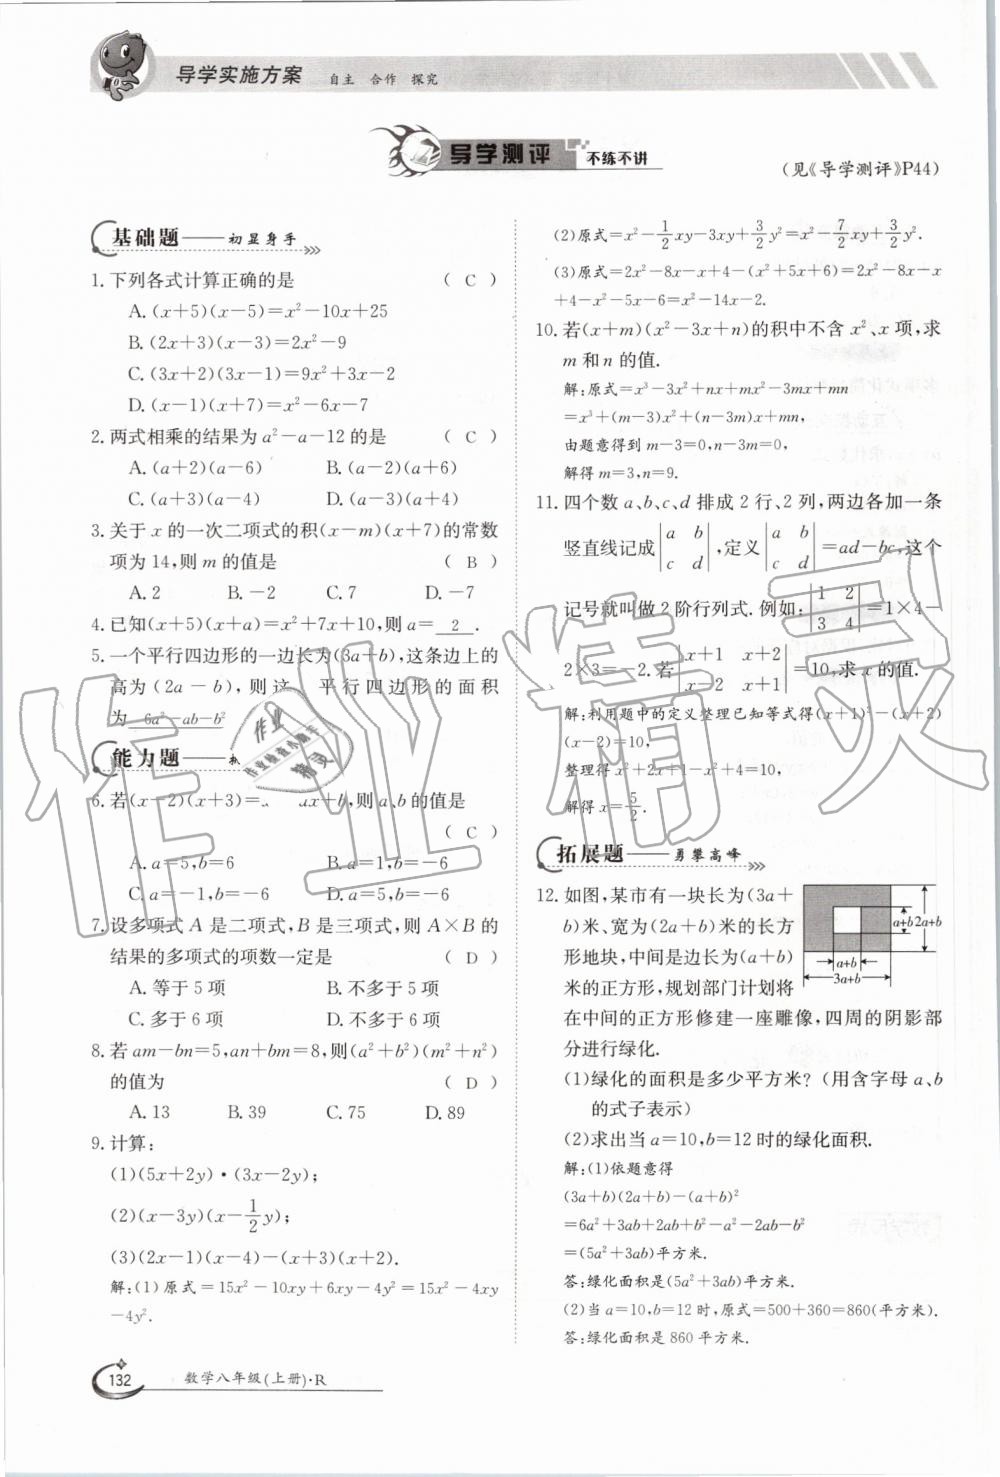 导学实施方案 自主 合作 探究
导学测评 不练不讲
(见《导学测评》P44)
基础题——初显身手
1. 下列各式计算正确的是 ( C )
A. (x+5)(x-5)=x²-10x+25
B. (2x+3)(x-3)=2x²-9
C. (3x+2)(3x-1)=9x²+3x-2
D. (x-1)(x+7)=x²-6x-7
2. 两式相乘的结果为 a²-a-12 的是 ( C )
A. (a+2)(a-6) B. (a-2)(a+6)
C. (a+3)(a-4) D. (a-3)(a+4)
3. 关于 x 的一次二项式的积(x-m)(x+7)的常数
项为 14,则 m 的值是 ( B )
A. 2 B. -2 C. 7 D. -7
4. 已知(x+5)(x+a)=x²+7x+10,则 a= 2 .
5. 一个平行四边形的一边长为(3a+b),这条边上的
高为(2a-b),则这 平行四边形的面积
为 6a²-ab-b²
能力题
6. 若(x-2)(x+3)=x ax+b,则 a、b 的值是
( C )
A. a=5,b=6 B. a=1,b=-6
C. a=-1,b=-6 D. a=5,b=-6
7. 设多项式 A 是二项式,B 是三项式,则 A×B 的
结果的多项式的项数一定是 ( D )
A. 等于 5 项 B. 不多于 5 项
C. 多于 6 项 D. 不多于 6 项
8. 若 am-bn=5,an+bm=8,则(a²+b²)(m²+n²)
的值为 ( D )
A. 13 B. 39 C. 75 D. 89
9. 计算:
(1)(5x+2y)·(3x-2y);
(2)(x-3y)(x-1/2y);
(3)(2x-1)(x-4)-(x+3)(x+2).
解:(1)原式=15x²-10xy+6xy-4y²=15x²-4xy
-4y².
(2)原式=x²-1/2xy-3xy+3/2y²=x²-7/2xy+3/2y².
(3)原式=2x²-8x-x+4-(x²+5x+6)=2x²-8x-x
+4-x²-5x-6=x²-14x-2.
10. 若(x+m)(x²-3x+n)的积中不含 x²、x 项,求
m 和 n 的值.
解:原式=x³-3x²+nx+mx²-3mx+mn
=x³+(m-3)x²+(n-3m)x+mn,
由题意得到 m-3=0,n-3m=0,
解得 m=3,n=9.
11. 四个数 a、b、c、d 排成 2 行、2 列,两边各加一条
竖直线记成|a b; c d|,定义|a b; c d|=ad-bc,这个
记号就叫做 2 阶行列式. 例如:|1 2; 3 4|=1×4-
2×3=-2. 若|x+1 x+2; x-2 x+1|=10,求 x 的值.
解:利用题中的定义整理已知等式得(x+1)²-(x+2)
(x-2)=10,
整理得 x²+2x+1-x²+4=10,
解得 x=5/2.
拓展题——勇攀高峰
12. 如图,某市有一块长为(3a+
b)米、宽为(2a+b)米的长方
形地块,中间是边长为(a+b)
米的正方形,规划部门计划将
在中间的正方形修建一座雕像,四周的阴影部
分进行绿化.
a+b 2a+b
a+b
3a+b
(1)绿化的面积是多少平方米?(用含字母 a、b
的式子表示)
(2)求出当 a=10,b=12 时的绿化面积.
解:(1)依题意得
(3a+b)(2a+b)-(a+b)²
=6a²+3ab+2ab+b²-a²-2ab-b²
=(5a²+3ab)平方米.
答:绿化面积是(5a²+3ab)平方米.
(2)当 a=10,b=12 时,原式=500+360=860(平方米).
答:绿化面积是 860 平方米.
132 数学八年级(上册)·R
作业精灵